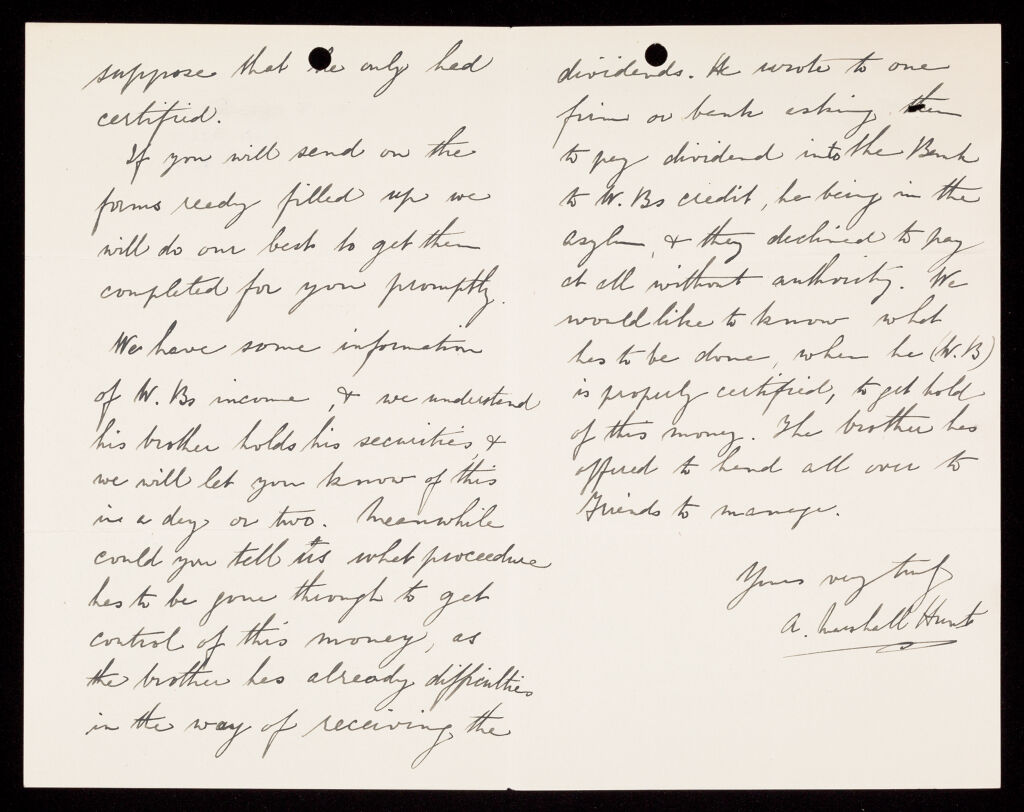 suppose that he only had
certified.
If you will send on the
forms ready filled up we
will do our best to get them
completed for you promptly.
We have some information
of W. Bs income, & we understand
his brother holds his securities, &
we will let you know of this
in a day or two. Meanwhile
could you tell us what proceedure
has to be gone through to get
control of this money, as
the brother has already difficulties
in the way of receiving the
dividends. He wrote to one
firm or bank asking them
to pay dividend into the Bank
to W. Bs credit, he being in the
asylum, & they declined to pay
at all without authority. We
would like to know what
has to be done, when he (W.B)
is properly certified, to get hold
of this money. The brother has
offered to hand all over to
Friends to manage.
Yours very truly
A. Marshall Hunt